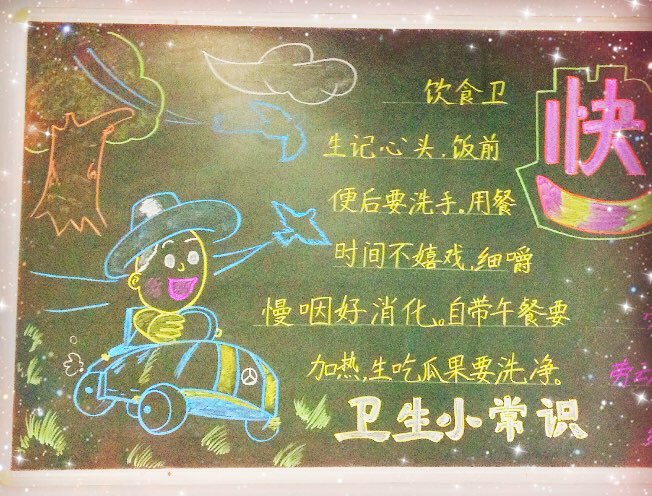 饮食卫
生记心头,饭前
便后要洗手。用餐
时间不嬉戏,细嚼
慢咽好消化。自带午餐要
加热,生吃瓜果要洗净。
卫生小常识
快